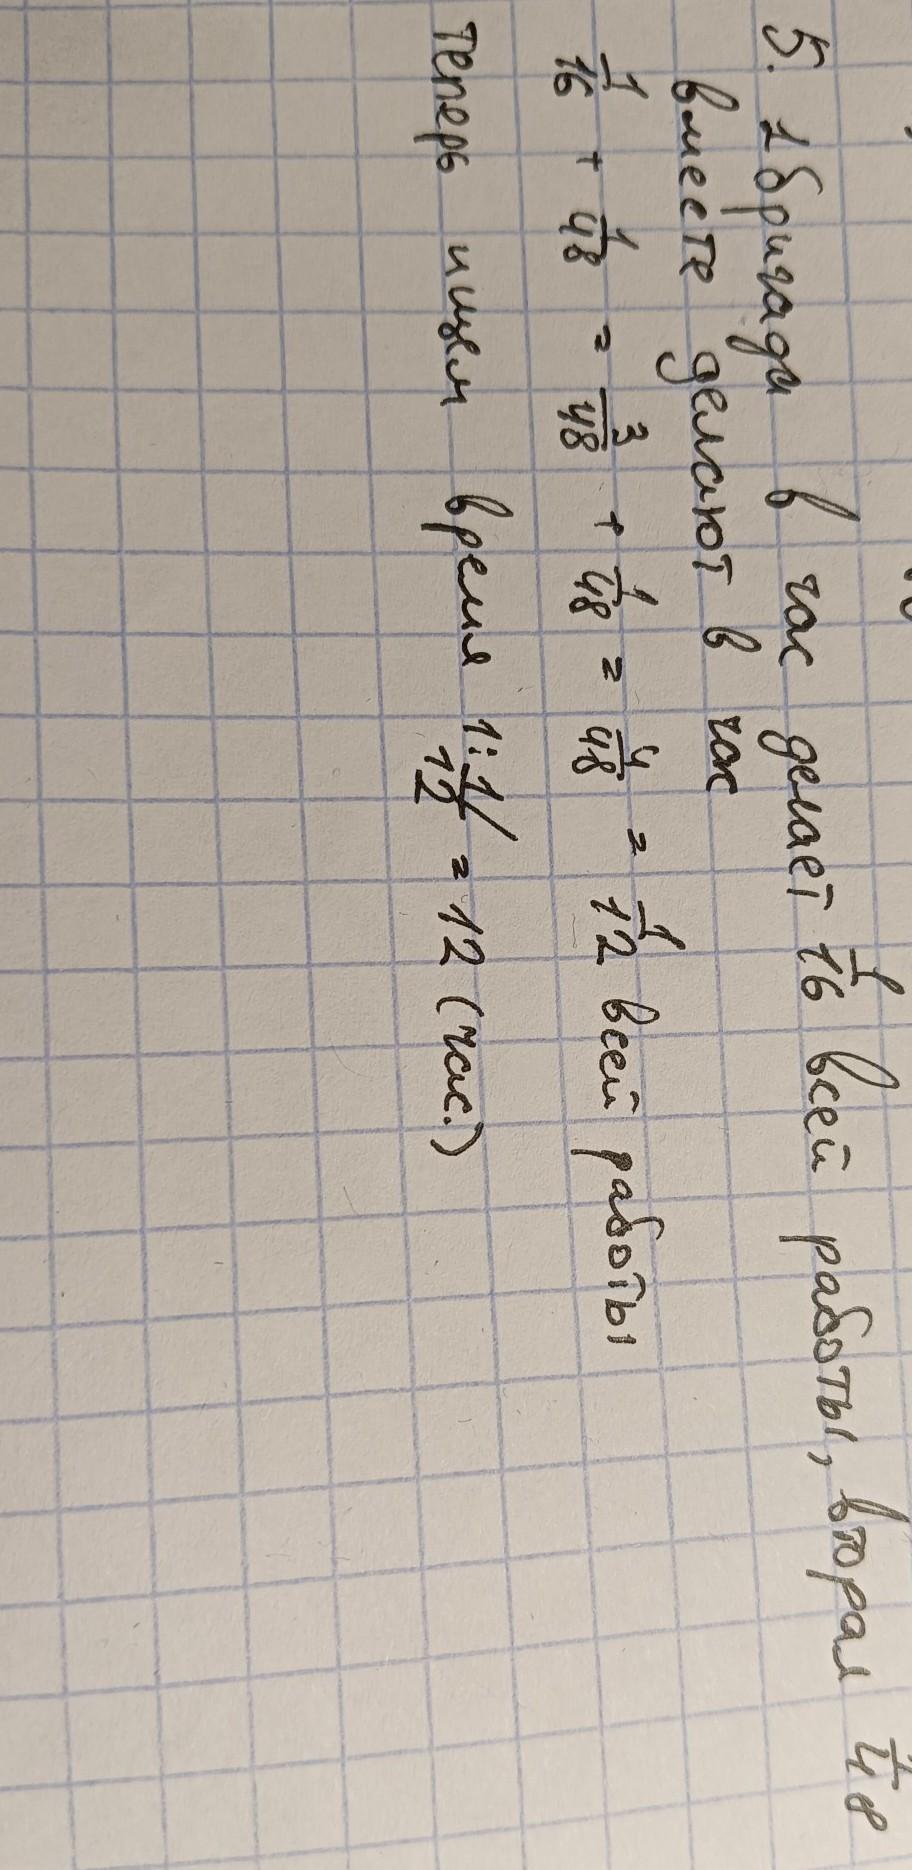 5. 1 бригада в час делает 1/16 всей работы, вторая 1/48
вместе делают в час
1/16 + 1/48 = 3/48 + 1/48 = 4/48 = 1/12 всей работы
теперь ищем время 1:1/12 = 12 (час.)